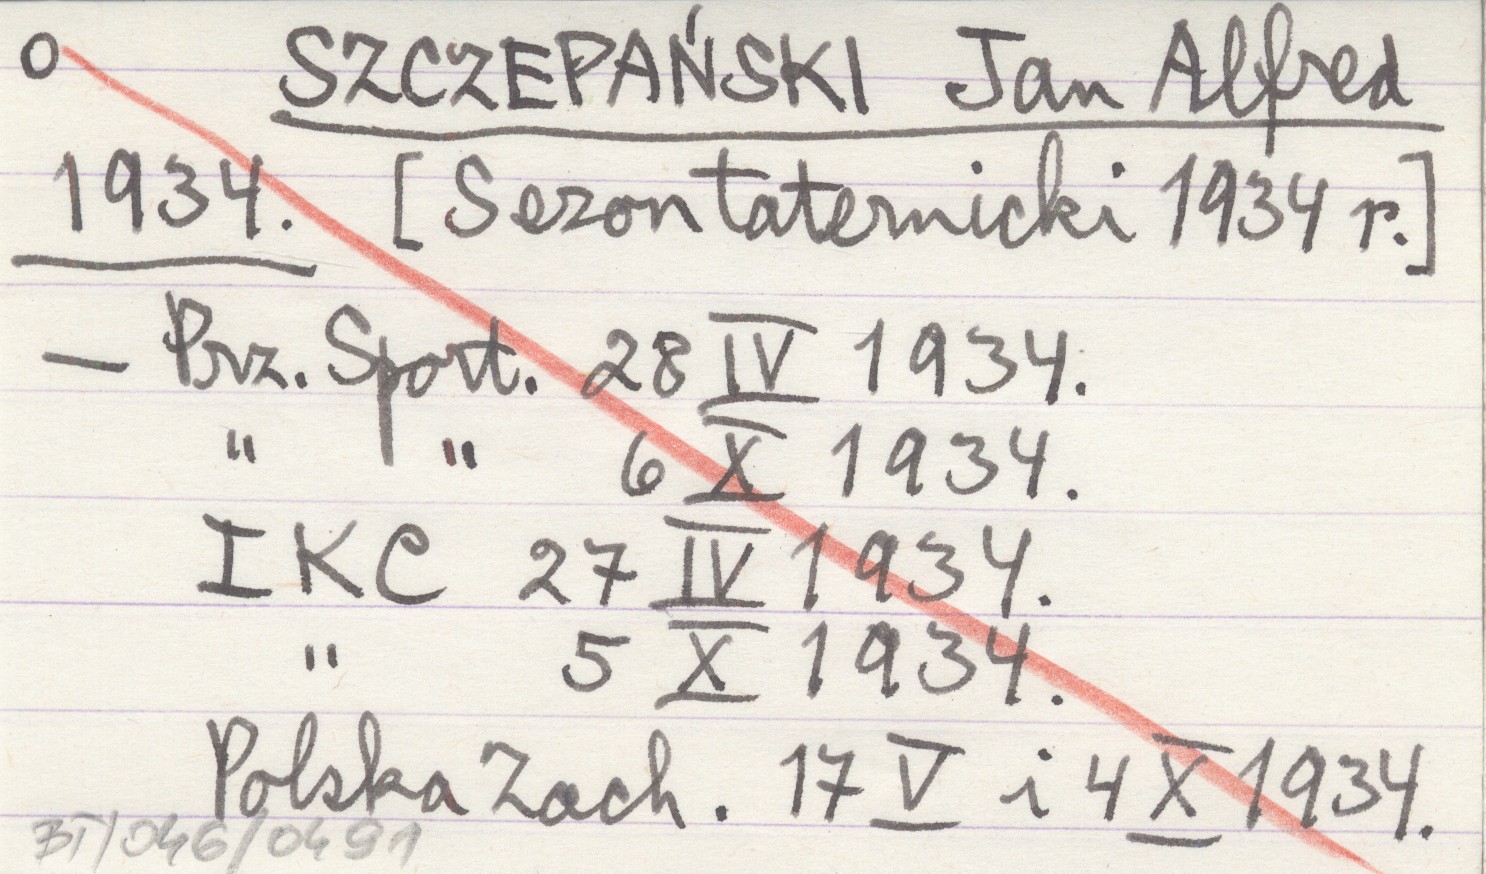 o SZCZEPAŃSKI Jan Alfred
1934. [Sezon taternicki 1934 r.]
— Prz. Sport. 28 IV 1934.
" " 6 X 1934.
IKC 27 IV 1934.
" 5 X 1934.
Polska Zach. 17 V i 4 X 1934.
BT/046/0491